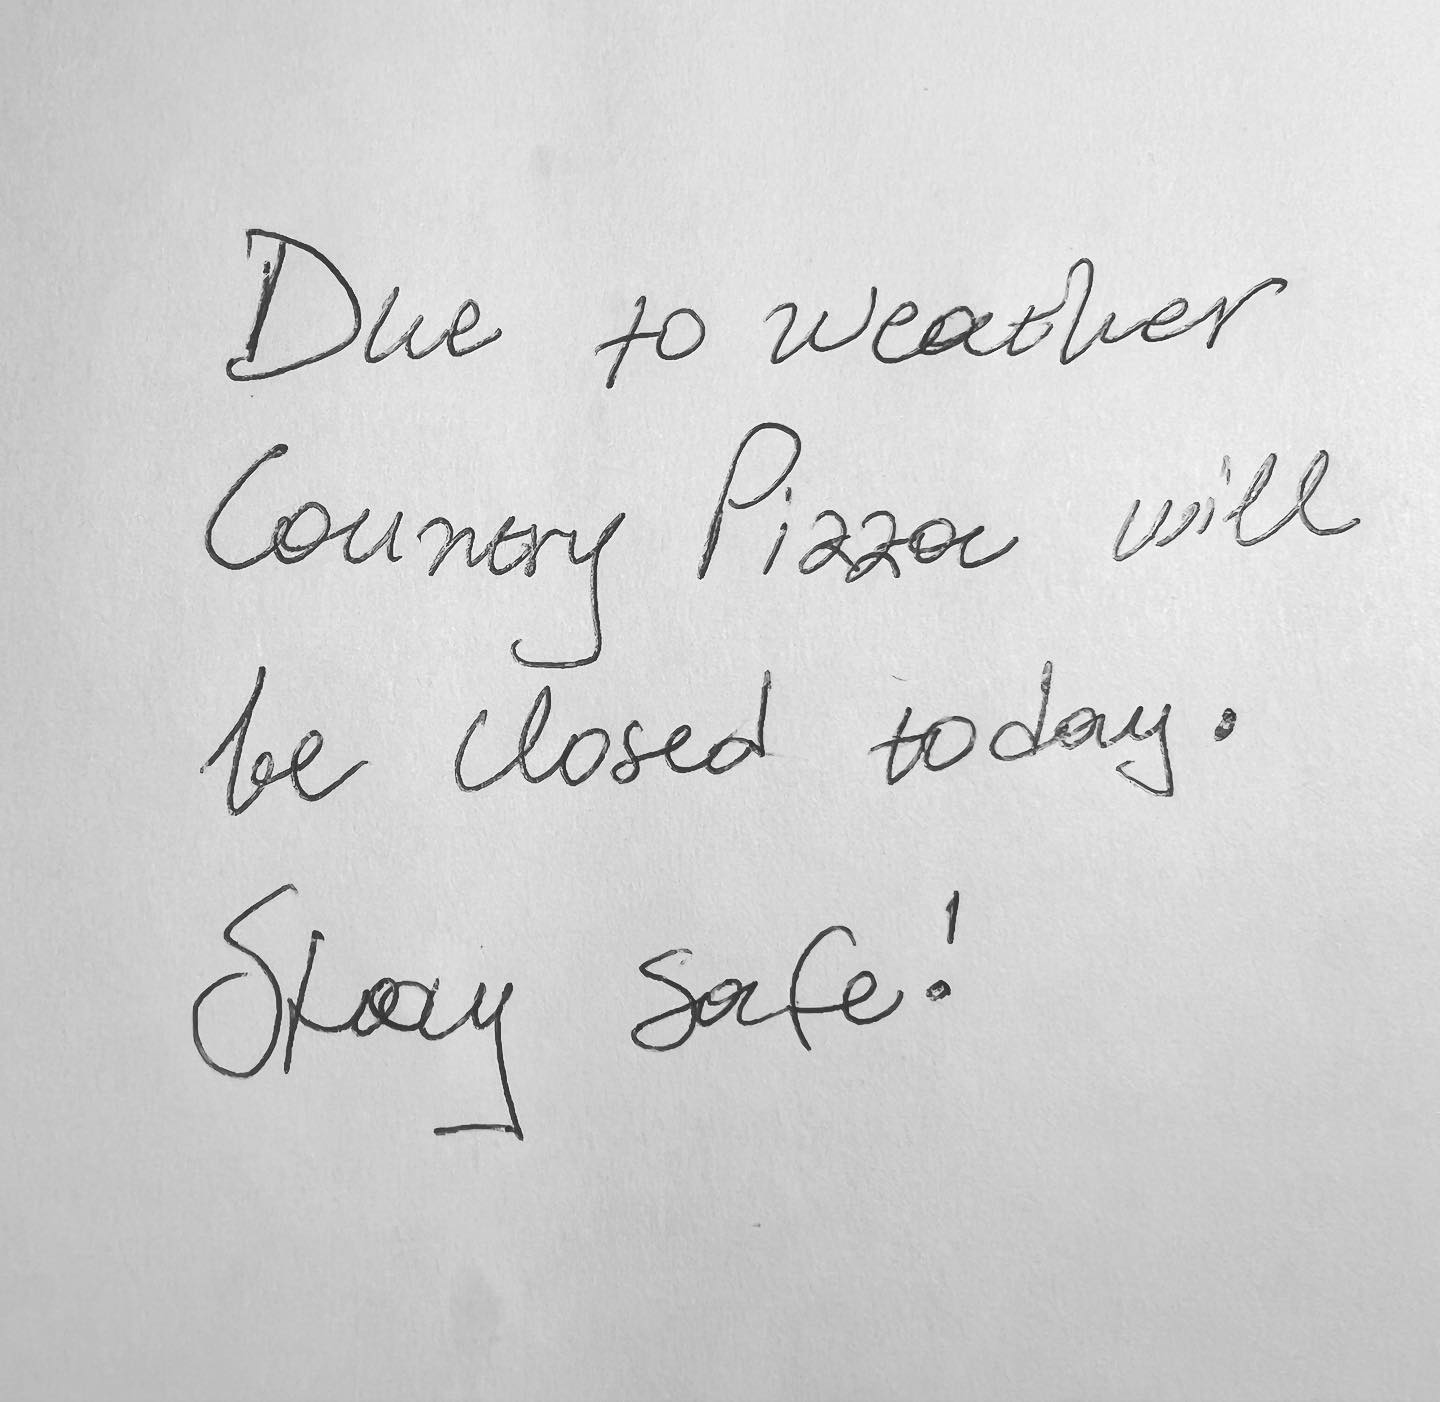 Due to weather
Country Pizza will
be closed today.
Stay safe!